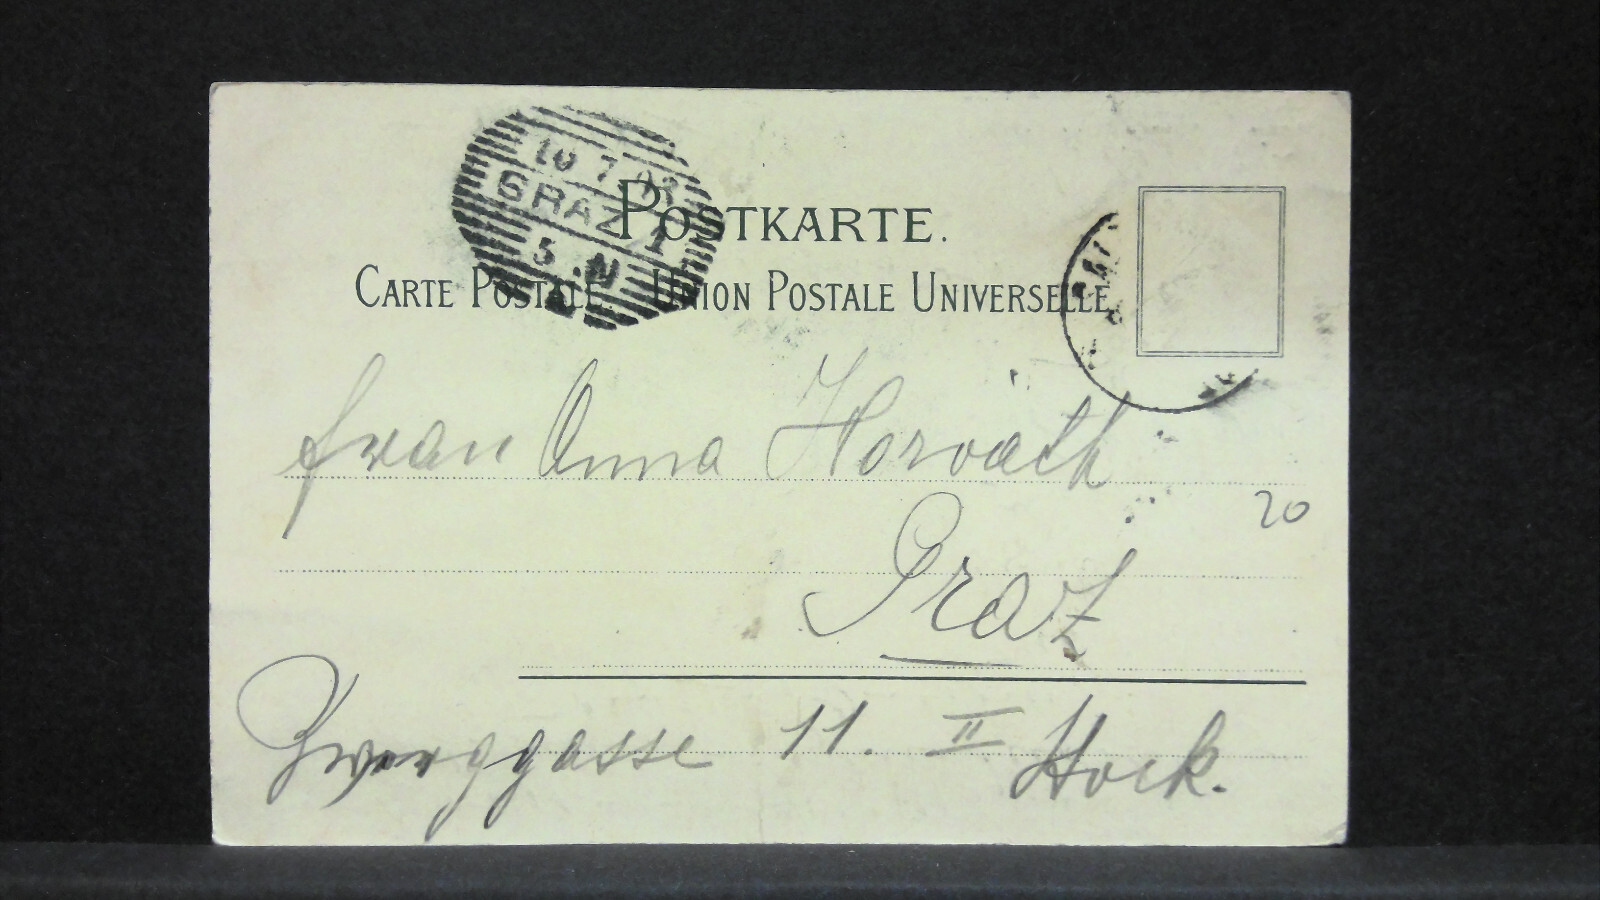 10 7 03
GRAZ 1
5.N
POSTKARTE.
CARTE POSTALE. UNION POSTALE UNIVERSELLE
Frau Anna Horváth
20
Graz
Zwerggasse 11. II Stock.